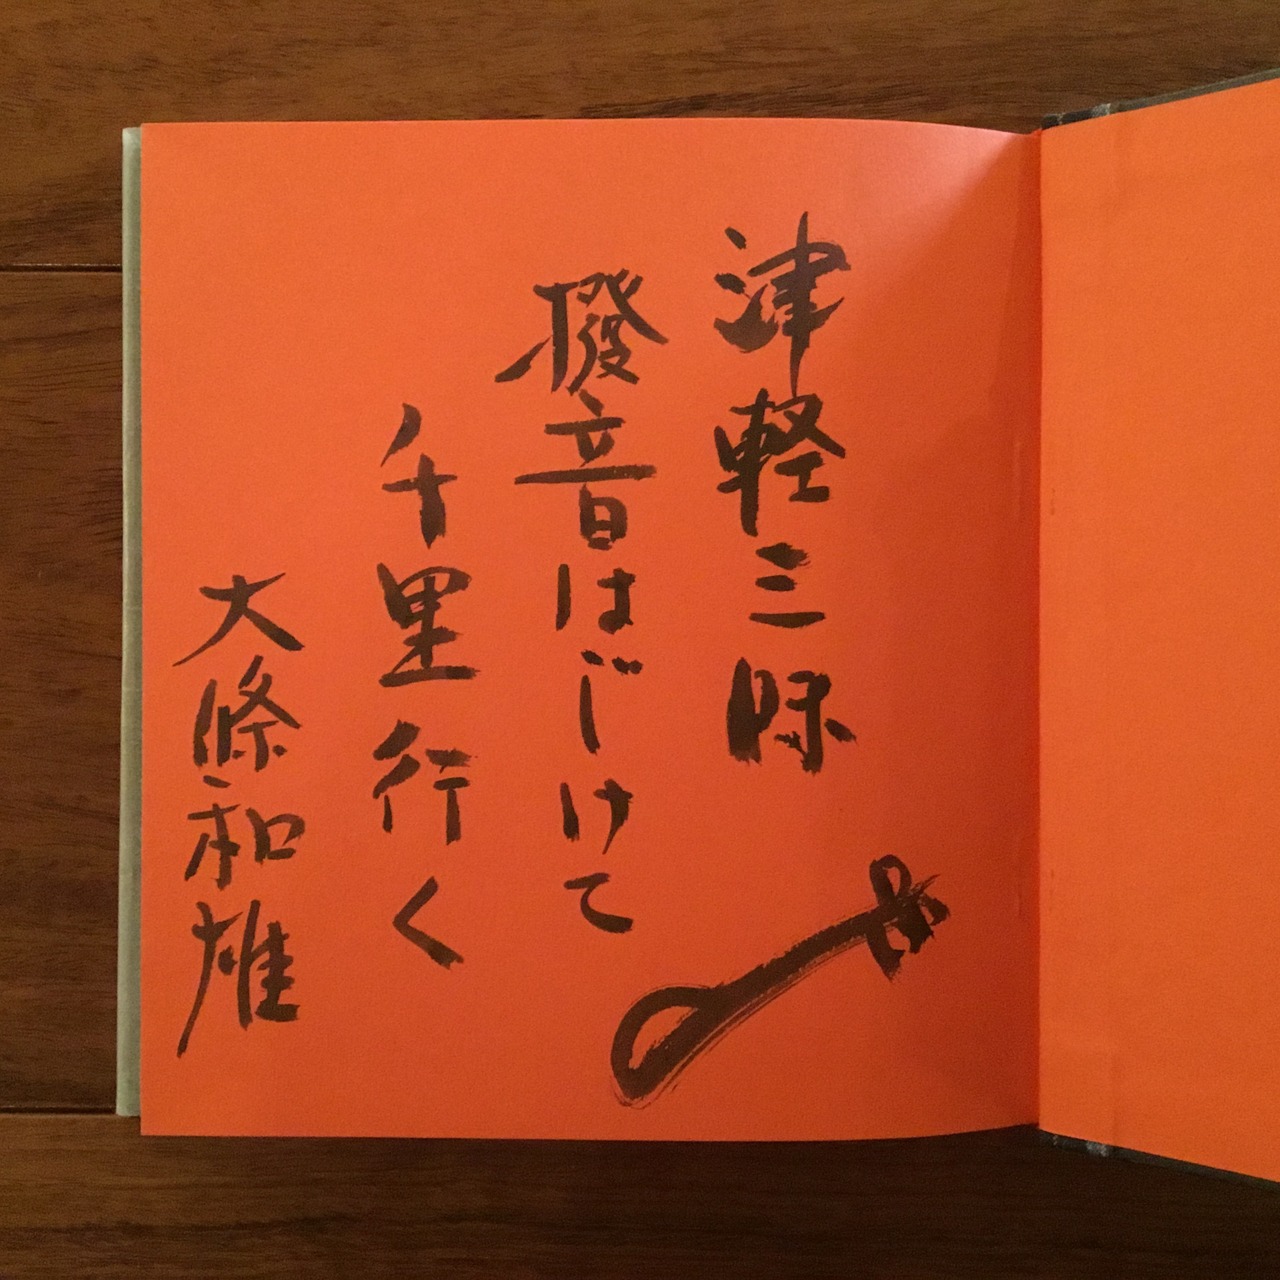 津軽三味
撥音はじけて
千里行く
大條和雄